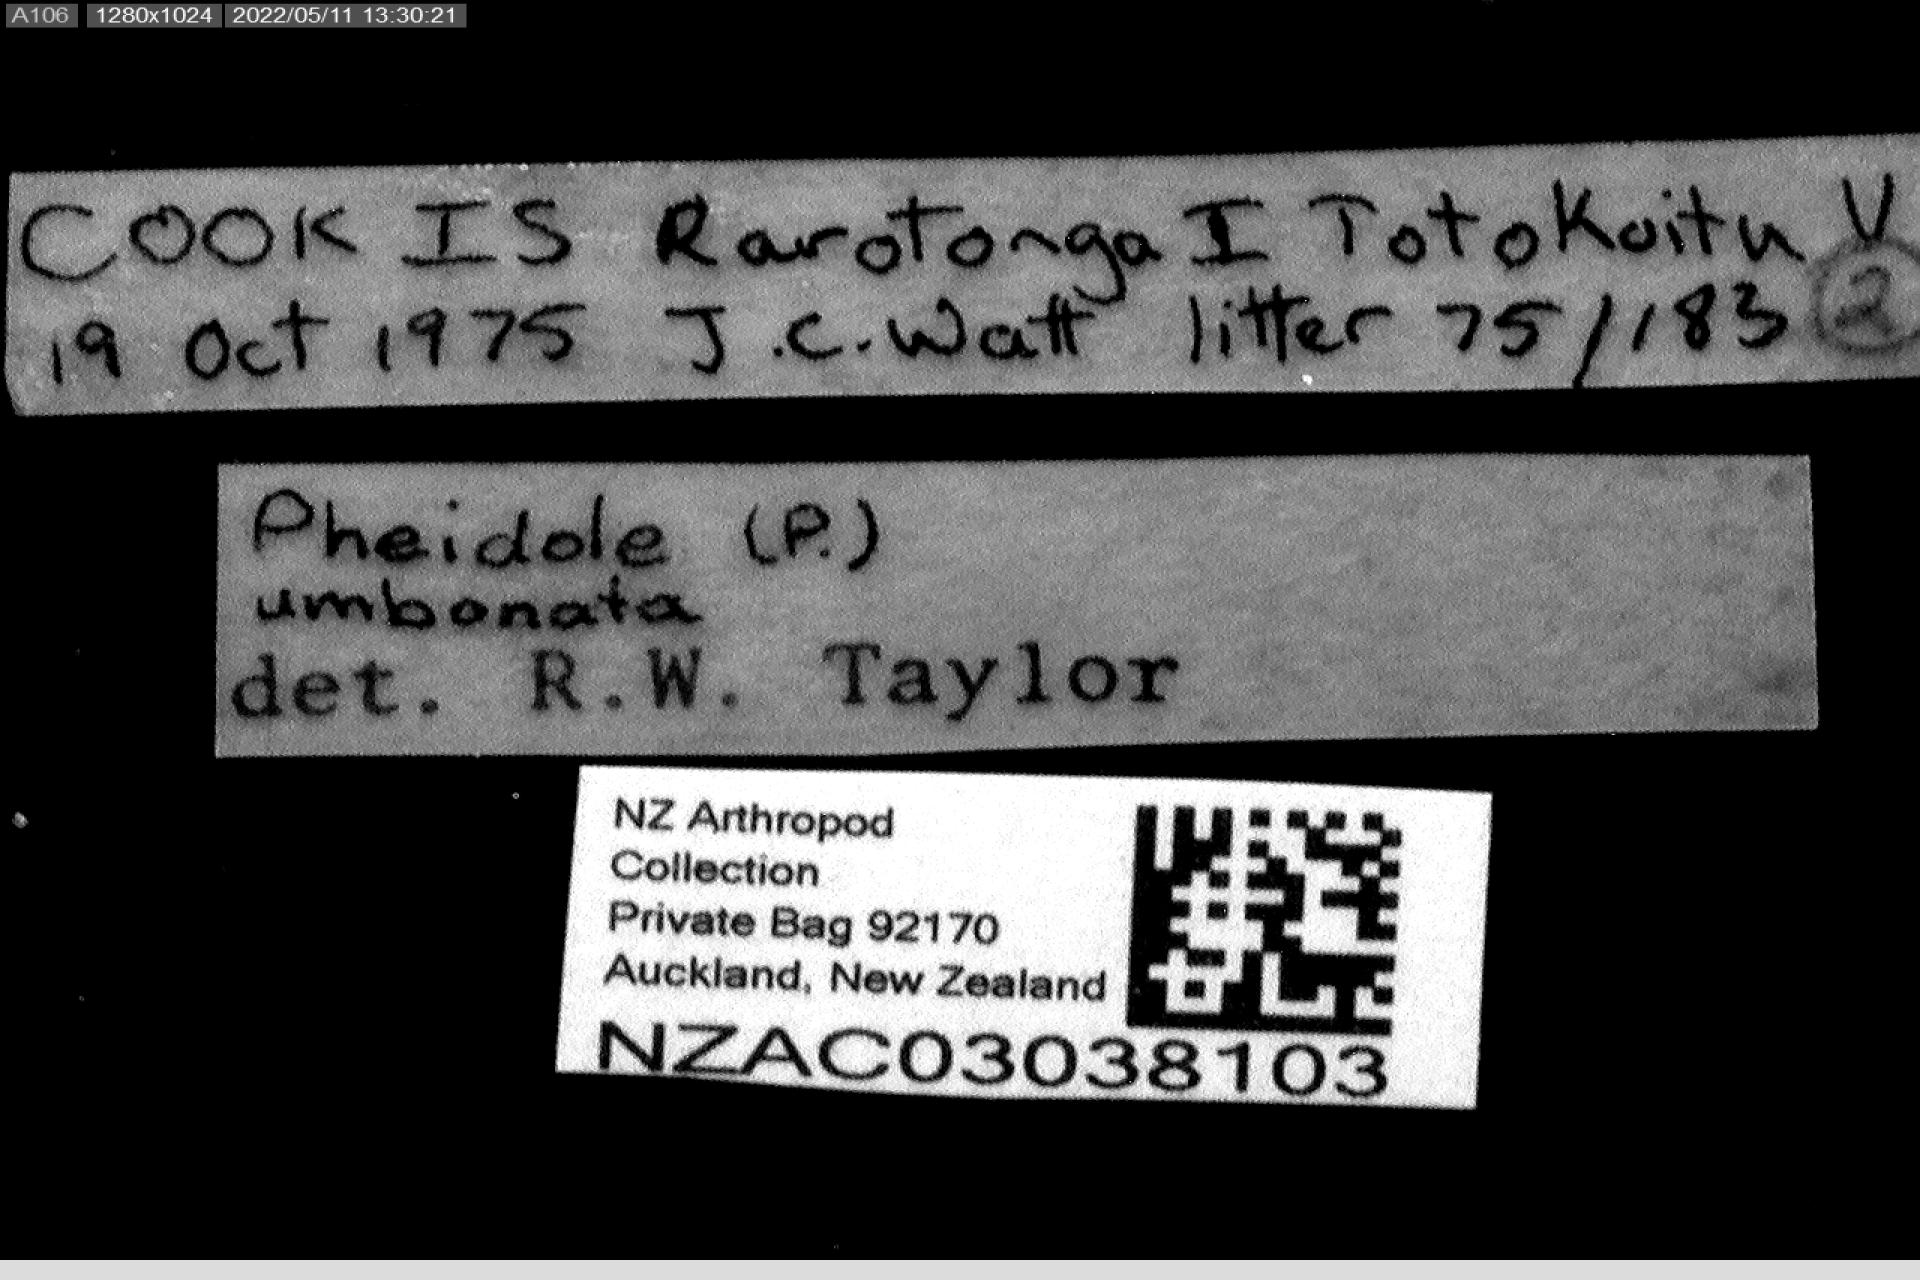 A106 1280x1024 2022/05/11 13:30:21
COOK IS Rarotonga I Totokoitu V
19 Oct 1975 J.C. Watt litter 75/183 2
Pheidole (P.)
umbonata
det. R.W. Taylor
NZ Arthropod
Collection
Private Bag 92170
Auckland, New Zealand
NZAC03038103